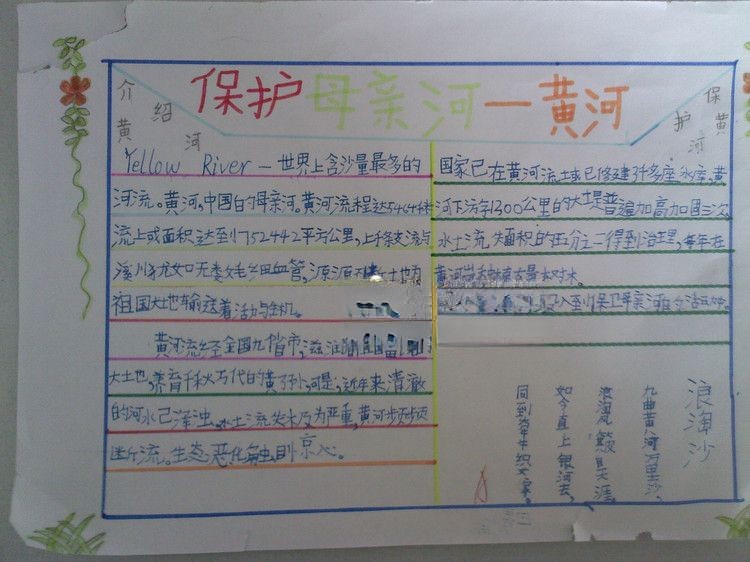 保护母亲河—黄河
介绍
黄河
保黄
护河
Yellow River — 世界上含沙量最多的
河流。黄河,中国的母亲河。黄河流程达5464米
流域面积达到752442平方公里,上千条支流与
溪川犹如无娄女毛细血管,源源不断土地为
祖国大地输送着活力与生机。
黄河流经全国九省市,滋润
大土地,养育千秋万代的黄子孙,可是,近年来清澈
的河水已浑浊,水土流失极为严重,黄河频频
断流。生态恶化触目京心。
国家已在黄河流域已修建3千多座水库,黄
河下游1300公里的大堤普遍加高加固三次,
水土流失面积的五分之二得到治理,每年在
黄河 树木。
入到保卫母亲河
浪淘沙
九曲黄河万里沙,
浪淘风簸自天涯。
如今直上银河去,
同到牵牛织女家。